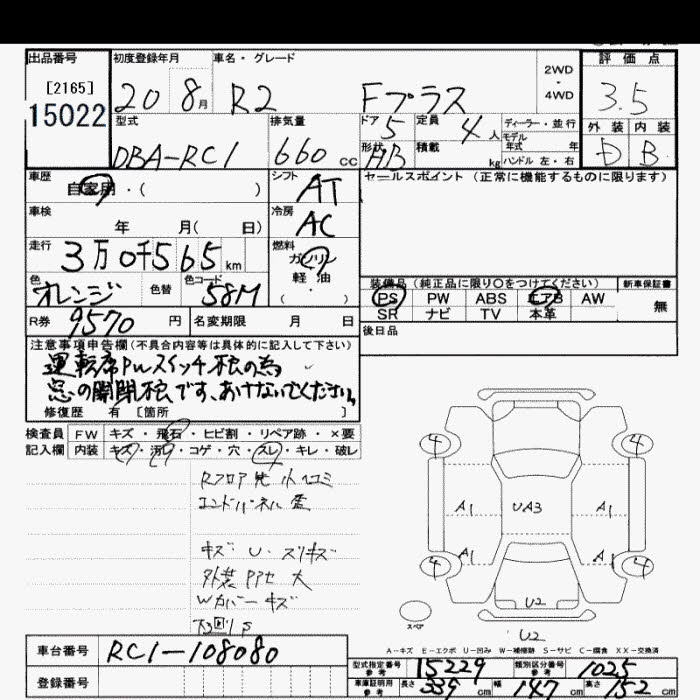 出品番号
[2165]
15022
初度登録年月
20 8月
車名・グレード
R2 Fプラス
2WD
・
4WD
評価点
3.5
外装 内装
D B
型式
DBA-RC1
排気量
660 cc
ドア 5
定員 4 人
形状 AB
積載 kg
ディーラー・並行
モデル
年式 年
ハンドル 左・右
車歴
自家用・( )
シフト
AT
セールスポイント (正常に機能するものに限ります)
車検
年 月( 日)
冷房
AC
走行
3万0千565 km
燃料
ガソリン
軽油
( ・ )
色
オレンジ
色替
色コード
58M
装備品(純正品に限り○をつけてください)
新車保証書
PS PW ABS エアB AW
無
SR ナビ TV 本革
R券
9570 円
名変期限 月 日
後日品
注意事項申告欄(不具合内容等は具体的に記入して下さい)
運転席PWスイッチ不良の為
窓の開閉不良です、あけないでください。
修復歴 有 [箇所 ]
検査員
記入欄
FW キズ・飛石・ヒビ割・リペア跡・×要
内装 キズ・汚れ・コゲ・穴・スレ・キレ・破レ
Rフロア先小ヘコミ
エンドパネル歪
キズ U スリキズ
外装 大
Wカバーキズ
4 4
A1 UA3 A1
A1 A1
4 4
U2
スペア
U2
A-キズ E-エクボ U-凹み W-補修跡 S-サビ C-腐食 XX-交換済
車台番号
RC1-108080
登録番号
型式指定番号
参考
15229
類別区分番号
参考
1025
車庫証明用
参考
長さ 339 cm
幅 147 cm
高さ 152 cm